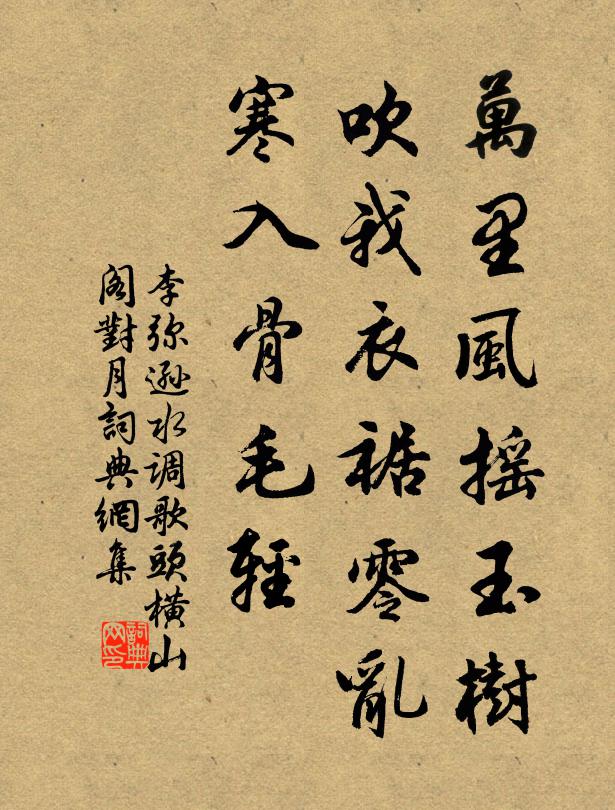 萬里風搖玉樹
吹我衣裾零亂
寒入骨毛輕
李弥遜水调歌頭橫山
閣對月詞典網集
詞典网印